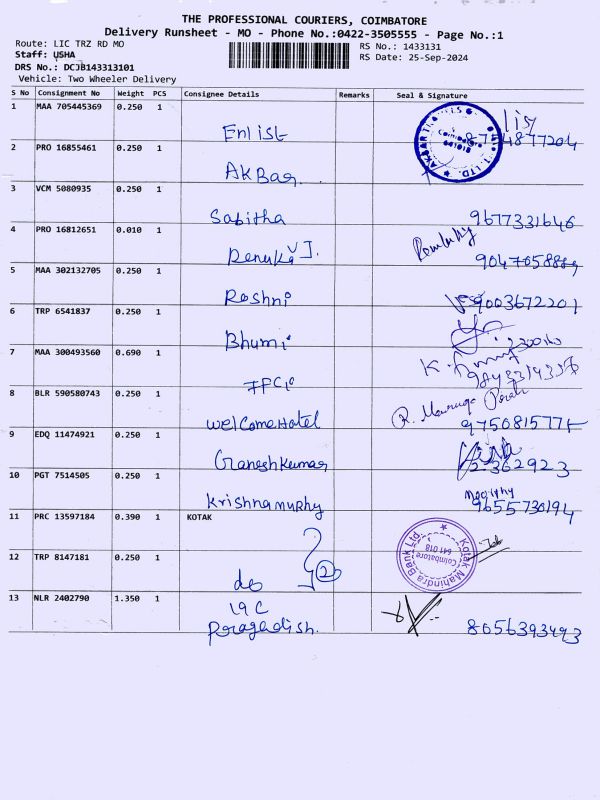 THE PROFESSIONAL COURIERS, COIMBATORE
Delivery Runsheet - MO - Phone No.:0422-3505555 - Page No.:1
Route: LIC TRZ RD MO
RS No.: 1433131
Staff: USHA
RS Date: 25-Sep-2024
DRS No.: DCJB143313101
Vehicle: Two Wheeler Delivery
S No Consignment No Weight PCS Consignee Details Remarks Seal & Signature
1 MAA 705445369 0.250 1
Enlist 8754877204
2 PRO 16855461 0.250 1
Coimbatore
641018
LTD.
AKBar
3 VCM 5080935 0.250 1
Sabitha 9677331646
4 PRO 16812651 0.010 1
Renuka J.
5 MAA 302132705 0.250 1
Roshni 9003672201
6 TRP 6541837 0.250 1
Bhumi
7 MAA 300493560 0.690 1
IFCI
8 BLR 590580743 0.250 1
welcomeHotel
9 EDQ 11474921 0.250 1
Ganeshkumar
10 PGT 7514505 0.250 1
Krishnamurphy 9655730194
11 PRC 13597184 0.390 1 KOTAK
Kotak Mahindra Bank Ltd.
Coimbatore
641 018
12 TRP 8147181 0.250 1
do 2
13 NLR 2402790 1.350 1
19C
Poragadish. 8056393493